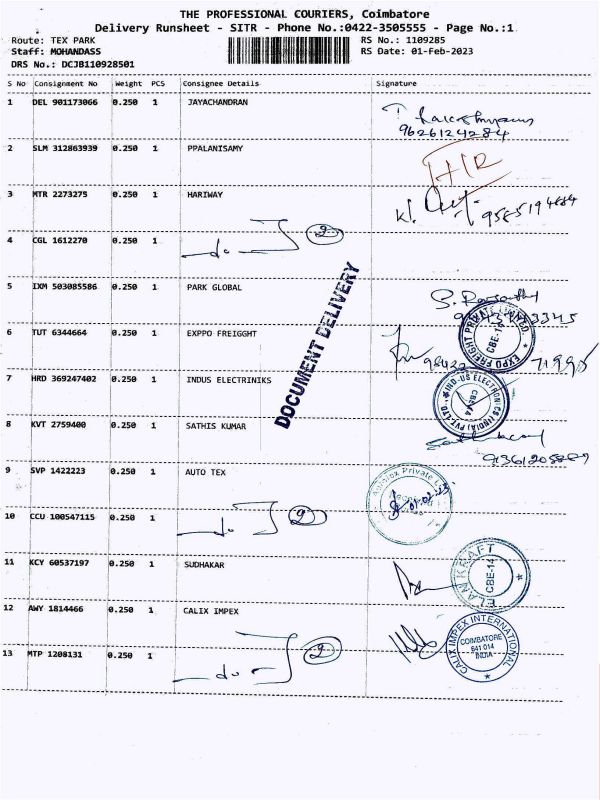 THE PROFESSIONAL COURIERS, Coimbatore
Delivery Runsheet - SITR - Phone No.:0422-3505555 - Page No.:1
Route: TEX PARK RS No.: 1109285
Staff: MOHANDASS RS Date: 01-Feb-2023
DRS No.: DCJB110928501
S No Consignment No Weight PCS Consignee Details Signature
1 DEL 901173066 0.250 1 JAYACHANDRAN
9626124284
2 SLM 312863939 0.250 1 PPALANISAMY
3 MTR 2273275 0.250 1 HARIWAY
9585194684
4 CGL 1612270 0.250 1 -do- 2
5 IXM 503085586 0.250 1 PARK GLOBAL
DOCUMENT DELIVERY
6 TUT 6344664 0.250 1 EXPPO FREIGGHT
EXPO FREIGHT PRIVATE LIMITED. CBE-14
7 HRD 369247402 0.250 1 INDUS ELECTRINIKS
IND-US ELECTRONICS (INDIA) PVT.LTD. CBE-14
8 KVT 2759400 0.250 1 SATHIS KUMAR
9 SVP 1422223 0.250 1 AUTO TEX
01.02.23
10 CCU 100547115 0.250 1 -do- 2
11 KCY 60537197 0.250 1 SUDHAKAR
KRAFT CBE-14
12 AWY 1814466 0.250 1 CALIX IMPEX
CALIX IMPEX INTERNATIONAL COIMBATORE 641 014 INDIA
13 MTP 1208131 0.250 1 -do- 2